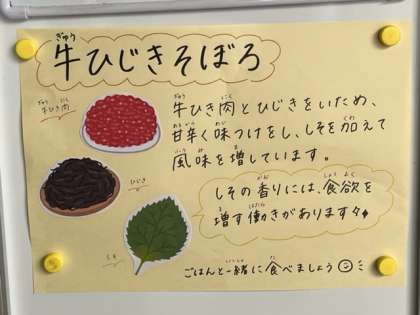 牛ひじきそぼろ
牛ひき肉
牛ひき肉とひじきをいため、
甘辛く味つけをし、しそを加えて
風味を増しています。
ひじき
しその香りには、食欲を
増す働きがあります
しそ
ごはんと一緒に食べましょう